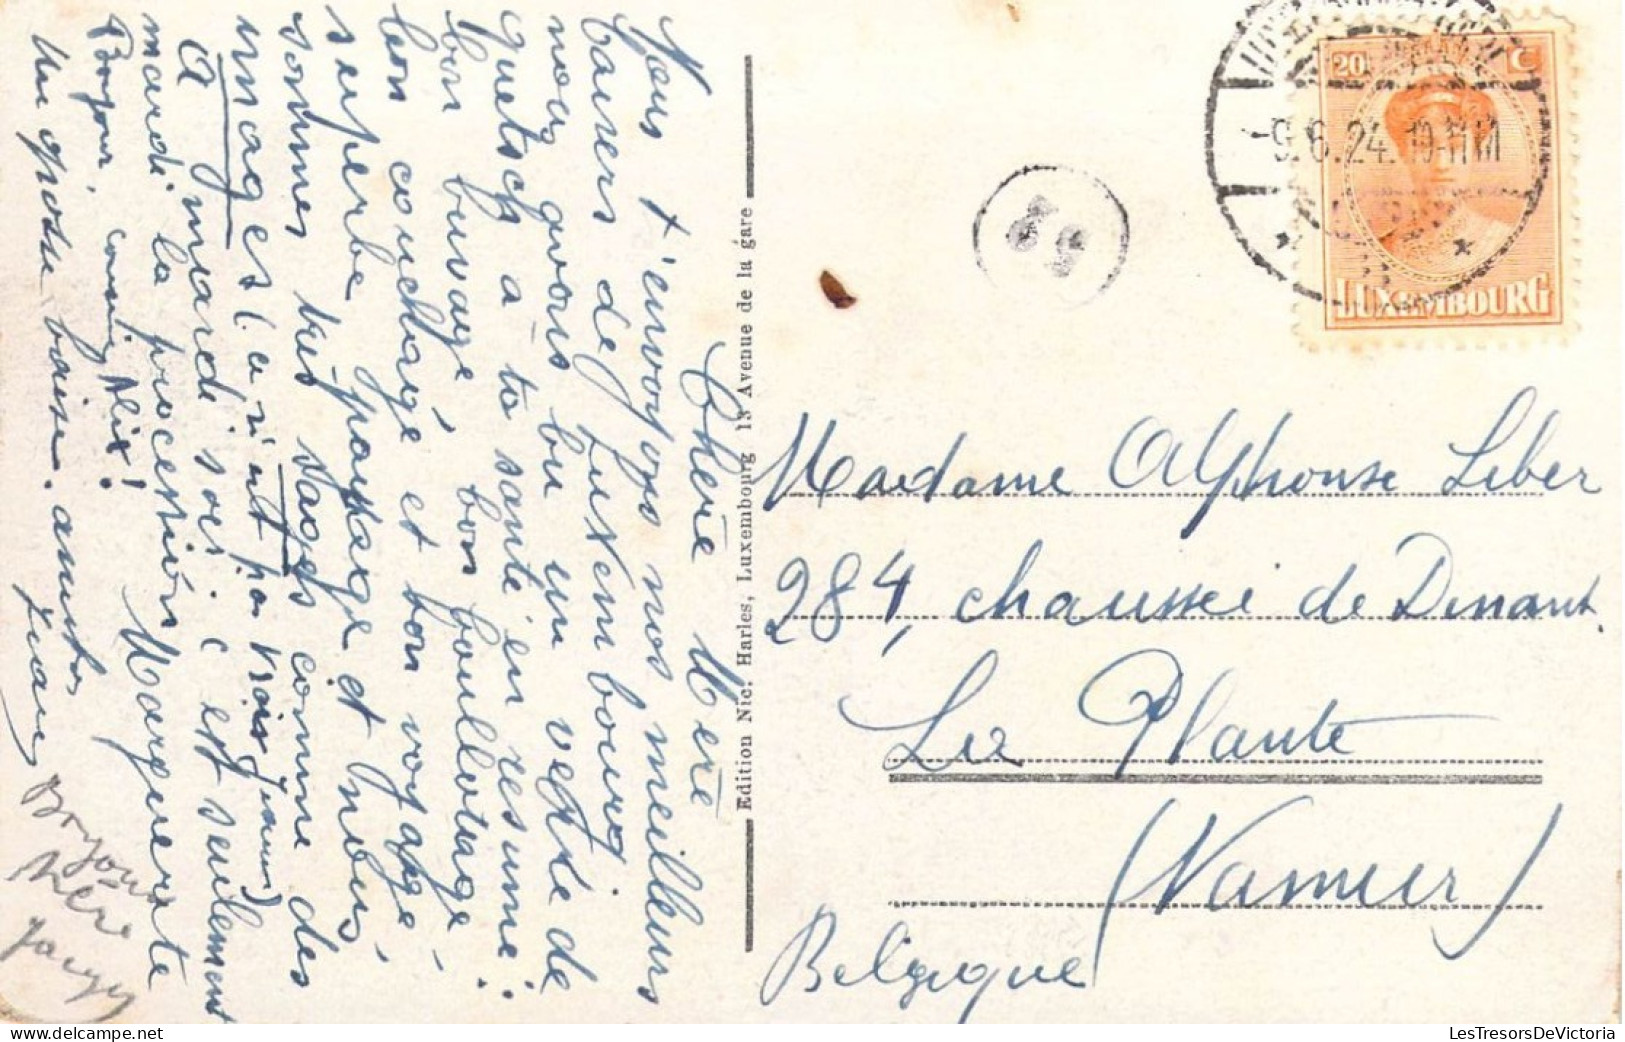 Chère Mère
Nous t'envoyons nos meilleurs
baisers de Luxembourg
nous avons bu un verre de
quetsch à ta santé en résumé :
bon buvage bon boullotage
bon couchage et bon voyage
superbe paysage et nous
sommes très sages comme des
images (ce n'est pas vrai Jeanne)
A mardi soir c'est seulement
mardi la procession Marguerite
Bonjour, cousine Alix !
Un gros baiser
Bonjour
Mère
Edition Nic. Harles, Luxembourg 13 Avenue de la gare
20 C
LUXEMBOURG
-9.6.24. 10-11
52
Madame Alphonse Liber
284, chaussée de Dinant.
La Plante
(Namur)
Belgique
LesTresorsDeVictoria